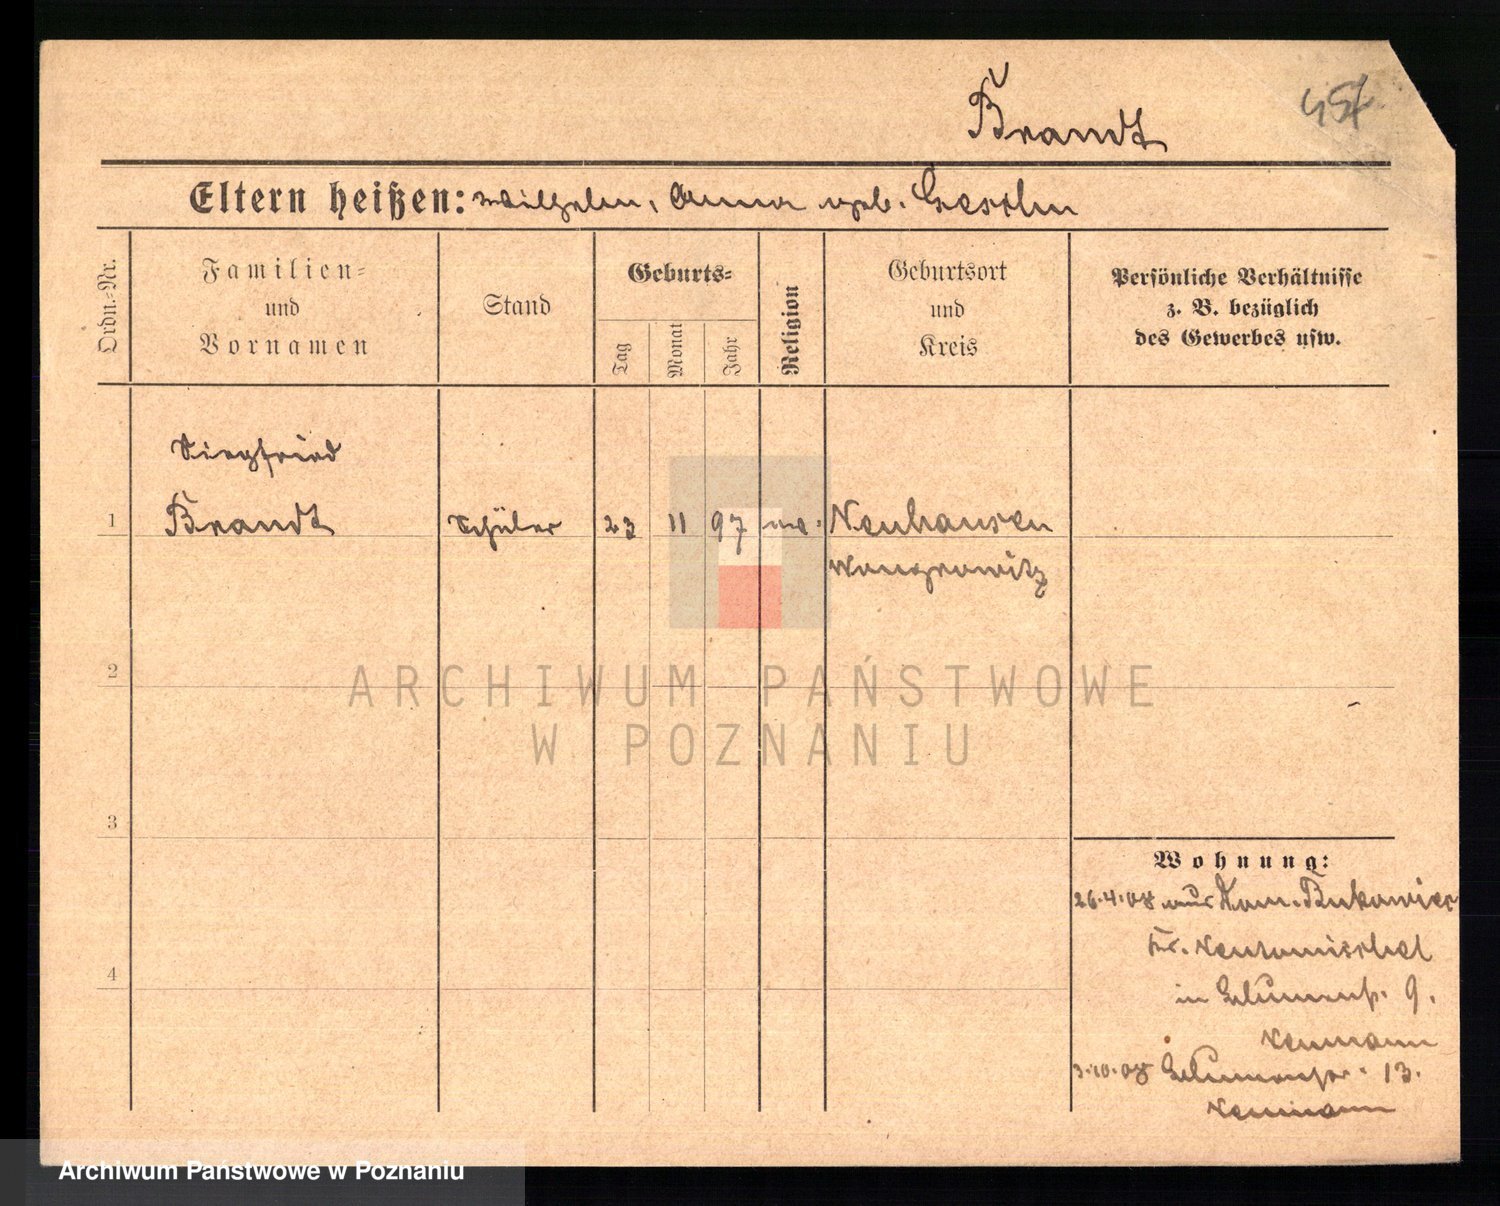 Brandt
Eltern heißen: Wilhelm, Anna geb.
Ordn.-Nr.
Familien-
und
Vornamen
Stand
Geburts-
Tag
Monat
Jahr
Religion
Geburtsort
und
Kreis
Persönliche Verhältnisse
z. B. bezüglich
des Gewerbes usw.
Siegfried
1 Brandt Schüler 23 11 97 Neuhausen
Wongrowitz
2
ARCHIWUM PAŃSTWOWE
W POZNANIU
3
Wohnung:
26.4.08 aus Dom. Bukowiec
Kr. Neutomischel
4
in Blumenstr. 9.
Neumann
3.10.08 Blumenstr. 13.
Neumann
Archiwum Państwowe w Poznaniu